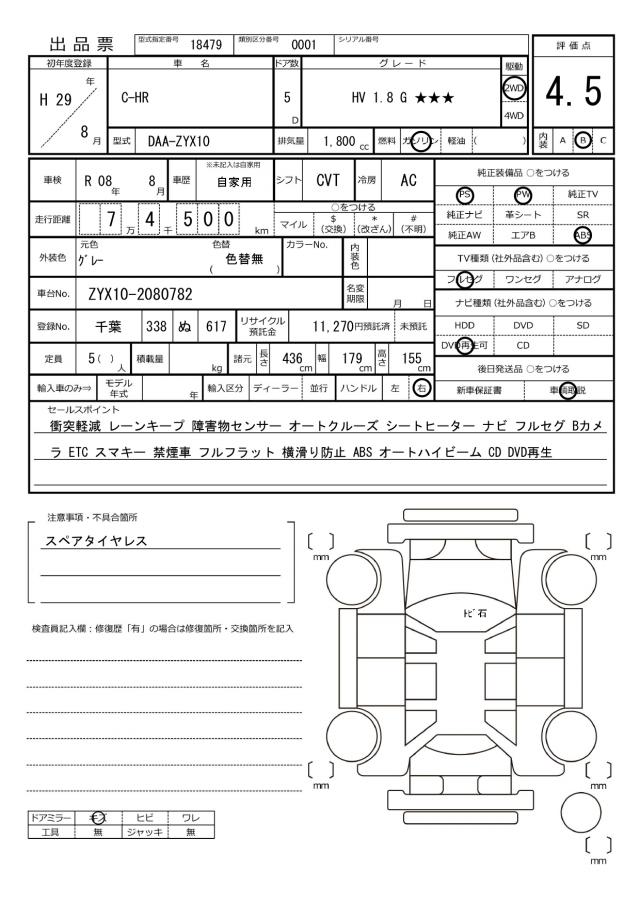 出品票 型式指定番号 18479 類別区分番号 0001 シリアル番号
評価点
4.5
初年度登録 車名 ドア数 グレード 駆動
H 29 年 8 月
C-HR
5 D
HV 1.8 G ★★★
2WD
4WD
型式 DAA-ZYX10 排気量 1,800 cc 燃料 ガソリン 軽油 ( )
内装 A B C
車検 R 08 年 8 月 車歴 ※未記入は自家用 自家用 シフト CVT 冷房 AC
走行距離 7 万 4 千 500 km
○をつける
マイル $ (交換) * (改ざん) # (不明)
外装色 元色 グレー 色替 ( 色替無 ) カラーNo. 内装色
車台No. ZYX10-2080782 名変期限 月 日
登録No. 千葉 338 ぬ 617 リサイクル預託金 11,270円預託済 未預託
定員 5 ( ) 人 積載量 kg 諸元 長さ 436 cm 幅 179 cm 高さ 155 cm
輸入車のみ⇒ モデル年式 年 輸入区分 ディーラー 並行 ハンドル 左 右
純正装備品 ○をつける
PS PW 純正TV
純正ナビ 革シート SR
純正AW エアB ABS
TV種類 (社外品含む) ○をつける
フルセグ ワンセグ アナログ
ナビ種類 (社外品含む) ○をつける
HDD DVD SD
DVD再生可 CD
後日発送品 ○をつける
新車保証書 車輌取説
セールスポイント
衝突軽減 レーンキープ 障害物センサー オートクルーズ シートヒーター ナビ フルセグ Bカメ
ラ ETC スマキー 禁煙車 フルフラット 横滑り防止 ABS オートハイビーム CD DVD再生
注意事項・不具合箇所
スペアタイヤレス
検査員記入欄：修復歴「有」の場合は修復箇所・交換箇所を記入
〔 〕 mm
〔 〕 mm
トビ石
〔 〕 mm
〔 〕 mm
〔 〕 mm
ドアミラー キズ ヒビ ワレ
工具 無 ジャッキ 無